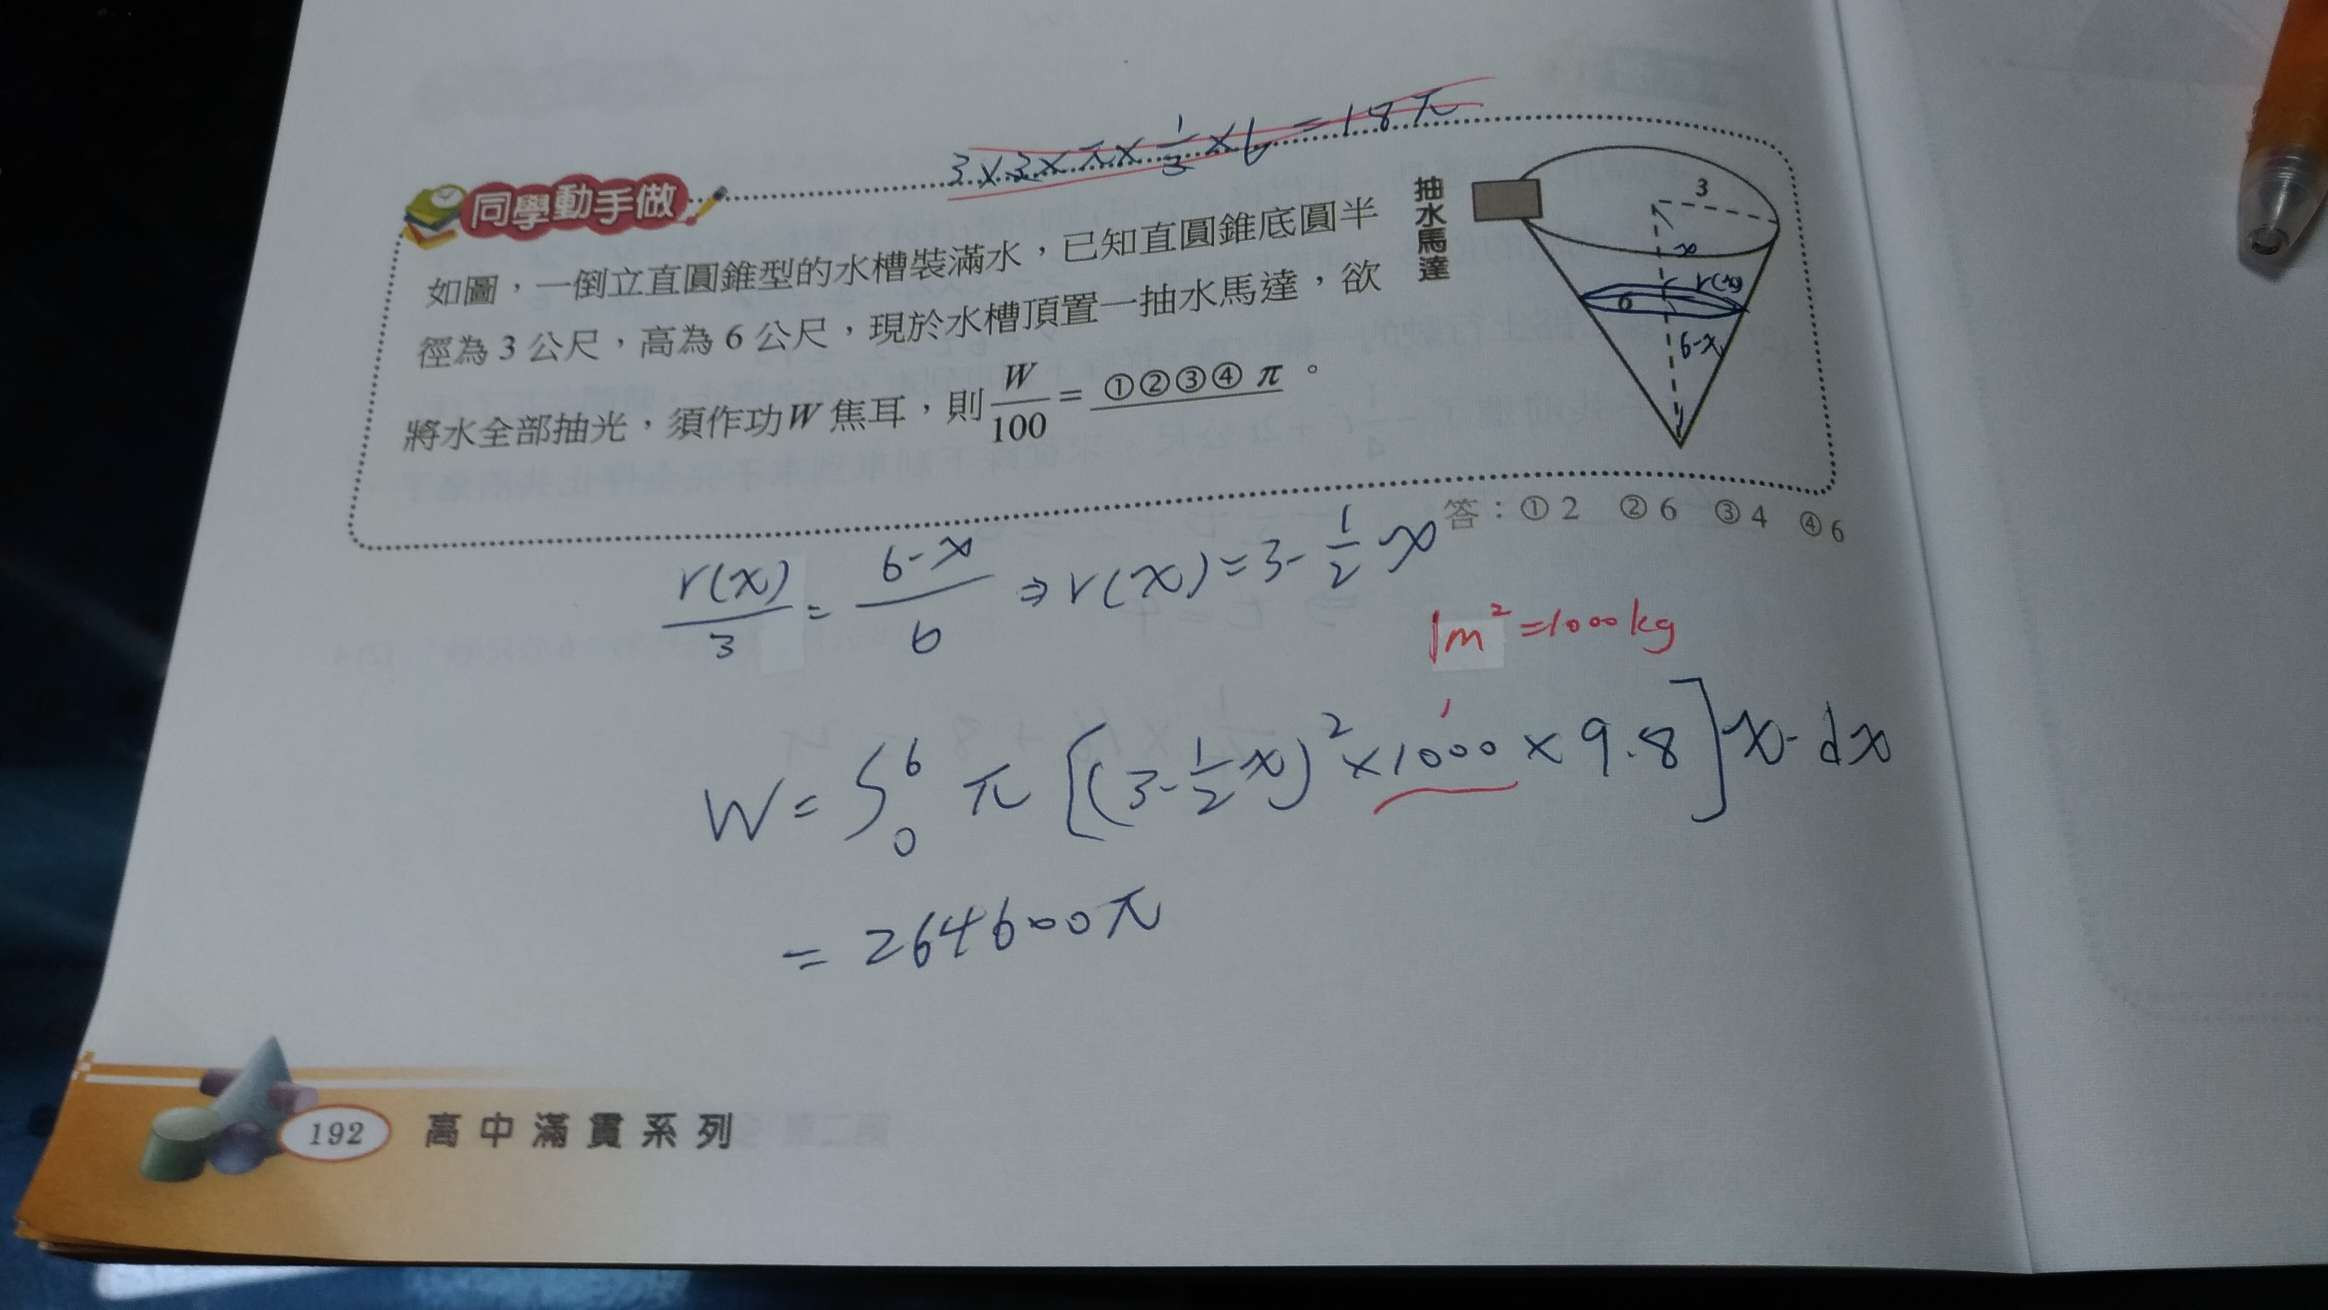 3×3×π×1/3×6=18π
同學動手做
如圖，一倒立直圓錐型的水槽裝滿水，已知直圓錐底圓半
徑為 3 公尺，高為 6 公尺，現於水槽頂置一抽水馬達，欲
將水全部抽光，須作功W焦耳，則 W/100 = ①②③④ π 。
抽水馬達
3
x
r(x)
6
6-x
答：① 2 ② 6 ③ 4 ④ 6
r(x)/3 = 6-x/6 ⇒ r(x)=3-1/2 x
1m²=1000kg
W = ∫₀⁶ π [(3-1/2 x)² ×1000 × 9.8] x · dx
= 264600π
192 高中滿貫系列